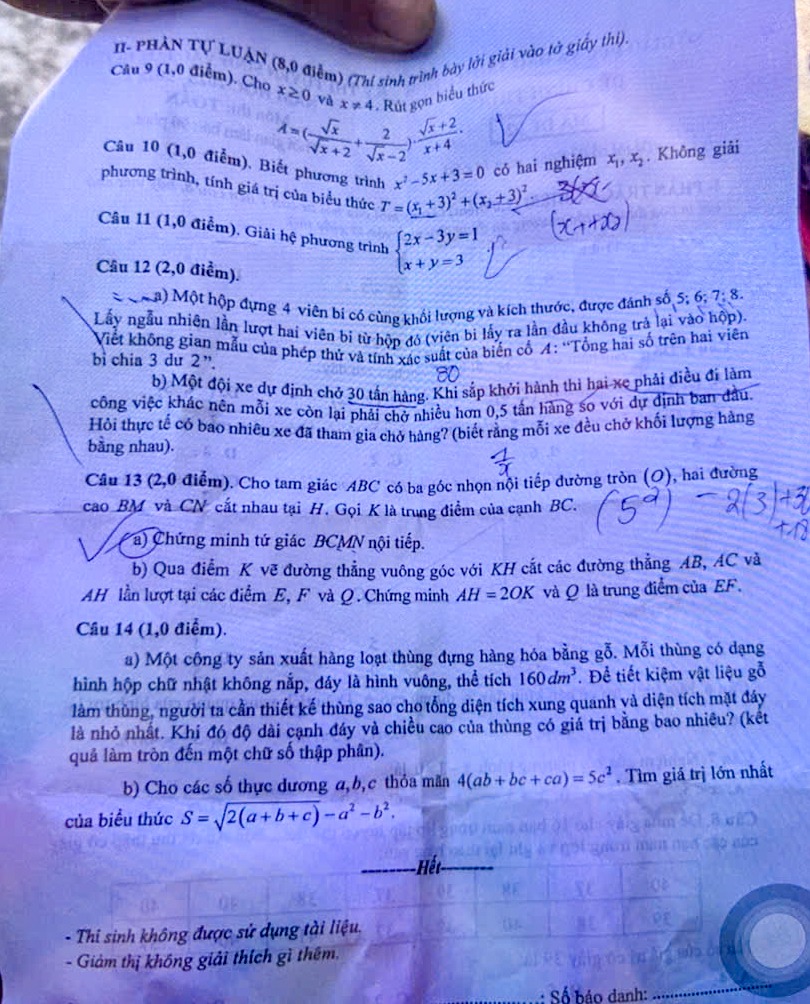 II- PHẦN TỰ LUẬN (8,0 điểm) (Thí sinh trình bày lời giải vào tờ giấy thi).
Câu 9 (1,0 điểm). Cho x ≥ 0 và x ≠ 4. Rút gọn biểu thức
A = (√x/(√x + 2) + 2/(√x − 2)) · (√x + 2)/(x + 4).
Câu 10 (1,0 điểm). Biết phương trình x² − 5x + 3 = 0 có hai nghiệm x₁, x₂. Không giải
phương trình, tính giá trị của biểu thức T = (x₁ + 3)² + (x₂ + 3)².
Câu 11 (1,0 điểm). Giải hệ phương trình { 2x − 3y = 1
x + y = 3 .
Câu 12 (2,0 điểm).
a) Một hộp đựng 4 viên bi có cùng khối lượng và kích thước, được đánh số 5; 6; 7; 8.
Lấy ngẫu nhiên lần lượt hai viên bi từ hộp đó (viên bi lấy ra lần đầu không trả lại vào hộp).
Viết không gian mẫu của phép thử và tính xác suất của biến cố A: “Tổng hai số trên hai viên
bi chia 3 dư 2”.
80
b) Một đội xe dự định chở 30 tấn hàng. Khi sắp khởi hành thì hai xe phải điều đi làm
công việc khác nên mỗi xe còn lại phải chở nhiều hơn 0,5 tấn hàng so với dự định ban đầu.
Hỏi thực tế có bao nhiêu xe đã tham gia chở hàng? (biết rằng mỗi xe đều chở khối lượng hàng
bằng nhau).
Câu 13 (2,0 điểm). Cho tam giác ABC có ba góc nhọn nội tiếp đường tròn (O), hai đường
cao BM và CN cắt nhau tại H. Gọi K là trung điểm của cạnh BC.
(5²) − 2(3)
a) Chứng minh tứ giác BCMN nội tiếp.
b) Qua điểm K vẽ đường thẳng vuông góc với KH cắt các đường thẳng AB, AC và
AH lần lượt tại các điểm E, F và Q. Chứng minh AH = 2OK và Q là trung điểm của EF.
Câu 14 (1,0 điểm).
a) Một công ty sản xuất hàng loạt thùng đựng hàng hóa bằng gỗ. Mỗi thùng có dạng
hình hộp chữ nhật không nắp, đáy là hình vuông, thể tích 160dm³. Để tiết kiệm vật liệu gỗ
làm thùng, người ta cần thiết kế thùng sao cho tổng diện tích xung quanh và diện tích mặt đáy
là nhỏ nhất. Khi đó độ dài cạnh đáy và chiều cao của thùng có giá trị bằng bao nhiêu? (kết
quả làm tròn đến một chữ số thập phân).
b) Cho các số thực dương a,b,c thỏa mãn 4(ab + bc + ca) = 5c². Tìm giá trị lớn nhất
của biểu thức S = √(2(a + b + c)) − a² − b².
----------Hết----------
- Thí sinh không được sử dụng tài liệu.
- Giám thị không giải thích gì thêm.
: Số báo danh: